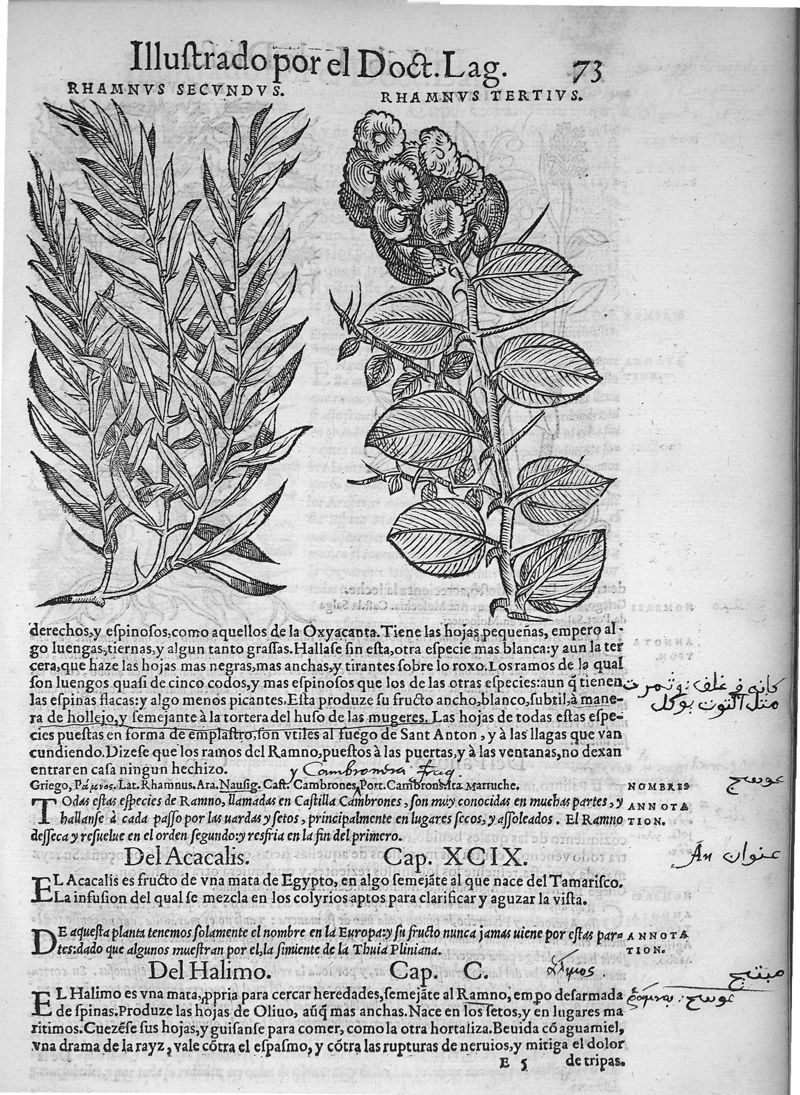 Illuſtrado por el Doct. Lag. 73
RHAMNVS SECVNDVS. RHAMNVS TERTIVS.
derechos, y eſpinoſos, como aquellos de la Oxyacanta. Tiene las hojas pequeñas, empero al-
go luengas, tiernas, y algun tanto graſſas. Hallaſe ſin eſta, otra eſpecie mas blanca: y aun la ter
cera, que haze las hojas mas negras, mas anchas, y tirantes ſobre lo roxo. Los ramos de la qual
ſon luengos quaſi de cinco codos, y mas eſpinoſos que los de las otras eſpecies: aun q̃ tienen
las eſpinas flacas: y algo menos picantes. Eſta produze ſu fructo ancho, blanco, ſubtil, à mane-
ra de hollejo, y ſemejante à la tortera del huſo de las mugeres. Las hojas de todas eſtas eſpe-
cies pueſtas en forma de emplaſtro, ſon vtiles al fuego de Sant Anton, y à las llagas que van
cundiendo. Dizeſe que los ramos del Ramno, pueſtos à las puertas, y à las ventanas, no dexan
entrar en caſa ningun hechizo.
y Cambronera
Griego, Ράμνος. Lat. Rhamnus. Ara. Nauſig. Caſt. Cambrones. Port. Cambron. Ita. Marruche.
NOMBRES عوسج
TOdas eſtas eſpecies de Ramno, llamadas en Caſtilla Cambrones, ſon muy conocidas en muchas partes, y
hallanſe à cada paſſo por las uardas y ſetos, principalmente en lugares ſecos, y aſſoleados. El Ramno
deſſeca y reſuelue en el orden ſegundo: y reſfria en la fin del primero.
ANNOTA
TION.
Del Acacalis. Cap. XCIX.
عنوان
EL Acacalis es fructo de vna mata de Egypto, en algo ſemejãte al que nace del Tamariſco.
La infuſion del qual ſe mezcla en los colyrios aptos para clarificar y aguzar la viſta.
DE aqueſta planta tenemos ſolamente el nombre en la Europa: y ſu fructo nunca jamas uiene por eſtas par-
tes: dado que algunos mueſtran por el, la ſimiente de la Thuia Pliniana.
ANNOTA
TION.
Del Halimo. Cap. C.
EL Halimo es vna mata, ꝓpria para cercar heredades, ſemejãte al Ramno, empo deſarmada
de ſpinas. Produze las hojas de Oliuo, aũq̃ mas anchas. Nace en los ſetos, y en lugares ma
ritimos. Cuezẽſe ſus hojas, y guiſanſe para comer, como la otra hortaliza. Beuida cõ aguamiel,
vna drama de la rayz, vale cõtra el eſpaſmo, y cõtra las rupturas de neruios, y mitiga el dolor
عوسج
E 5 de tripas.